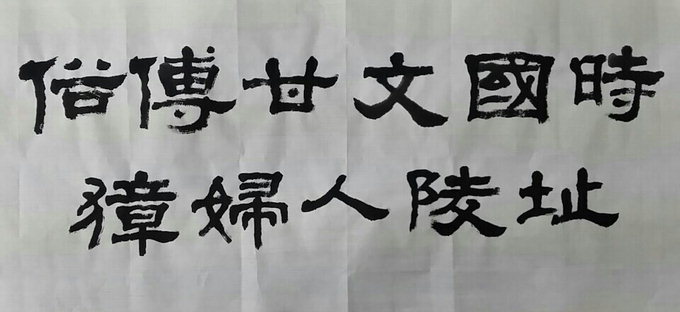 俗傳甘文國時
獐婦人陵址